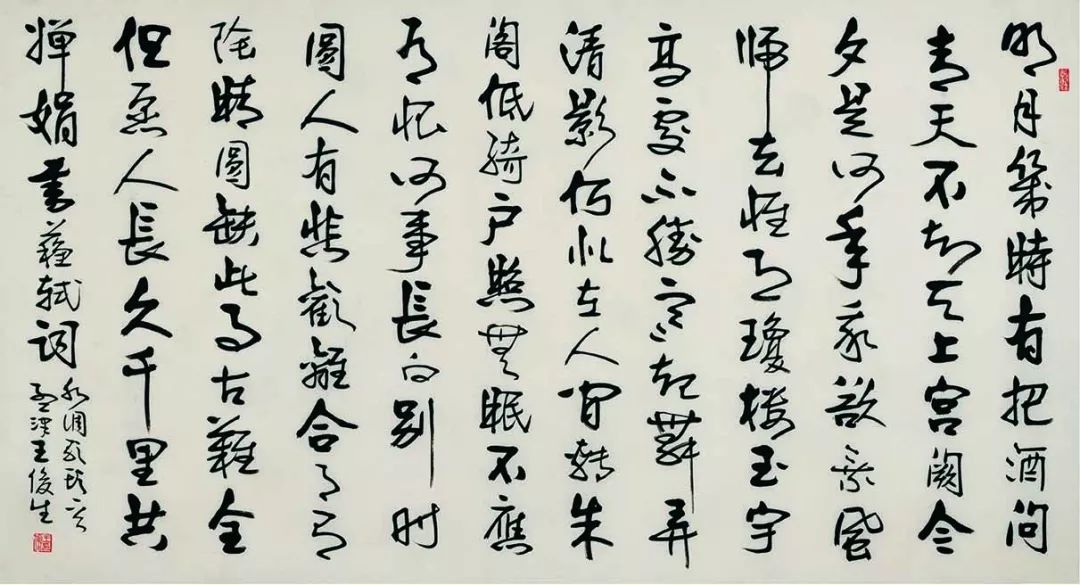 明月幾時有把酒問
青天不知天上宮闕今
夕是何年我欲乘風
歸去惟恐瓊樓玉宇
高處不勝寒起舞弄
清影何似在人間轉朱
閣低綺戶照無眠不應
有恨何事長向別時
圓人有悲歡離合月有
陰晴圓缺此事古難全
但願人長久千里共
嬋娟書蘇軾詞
水調歌頭
孟津王俊生